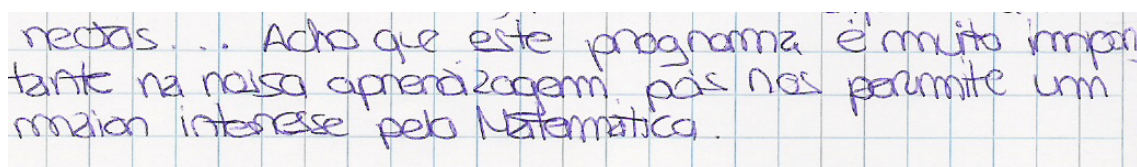 rectas... Acho que este programa é muito impor
tante na nossa aprendizagem, pois nos permite um
maior interesse pela Matemática.